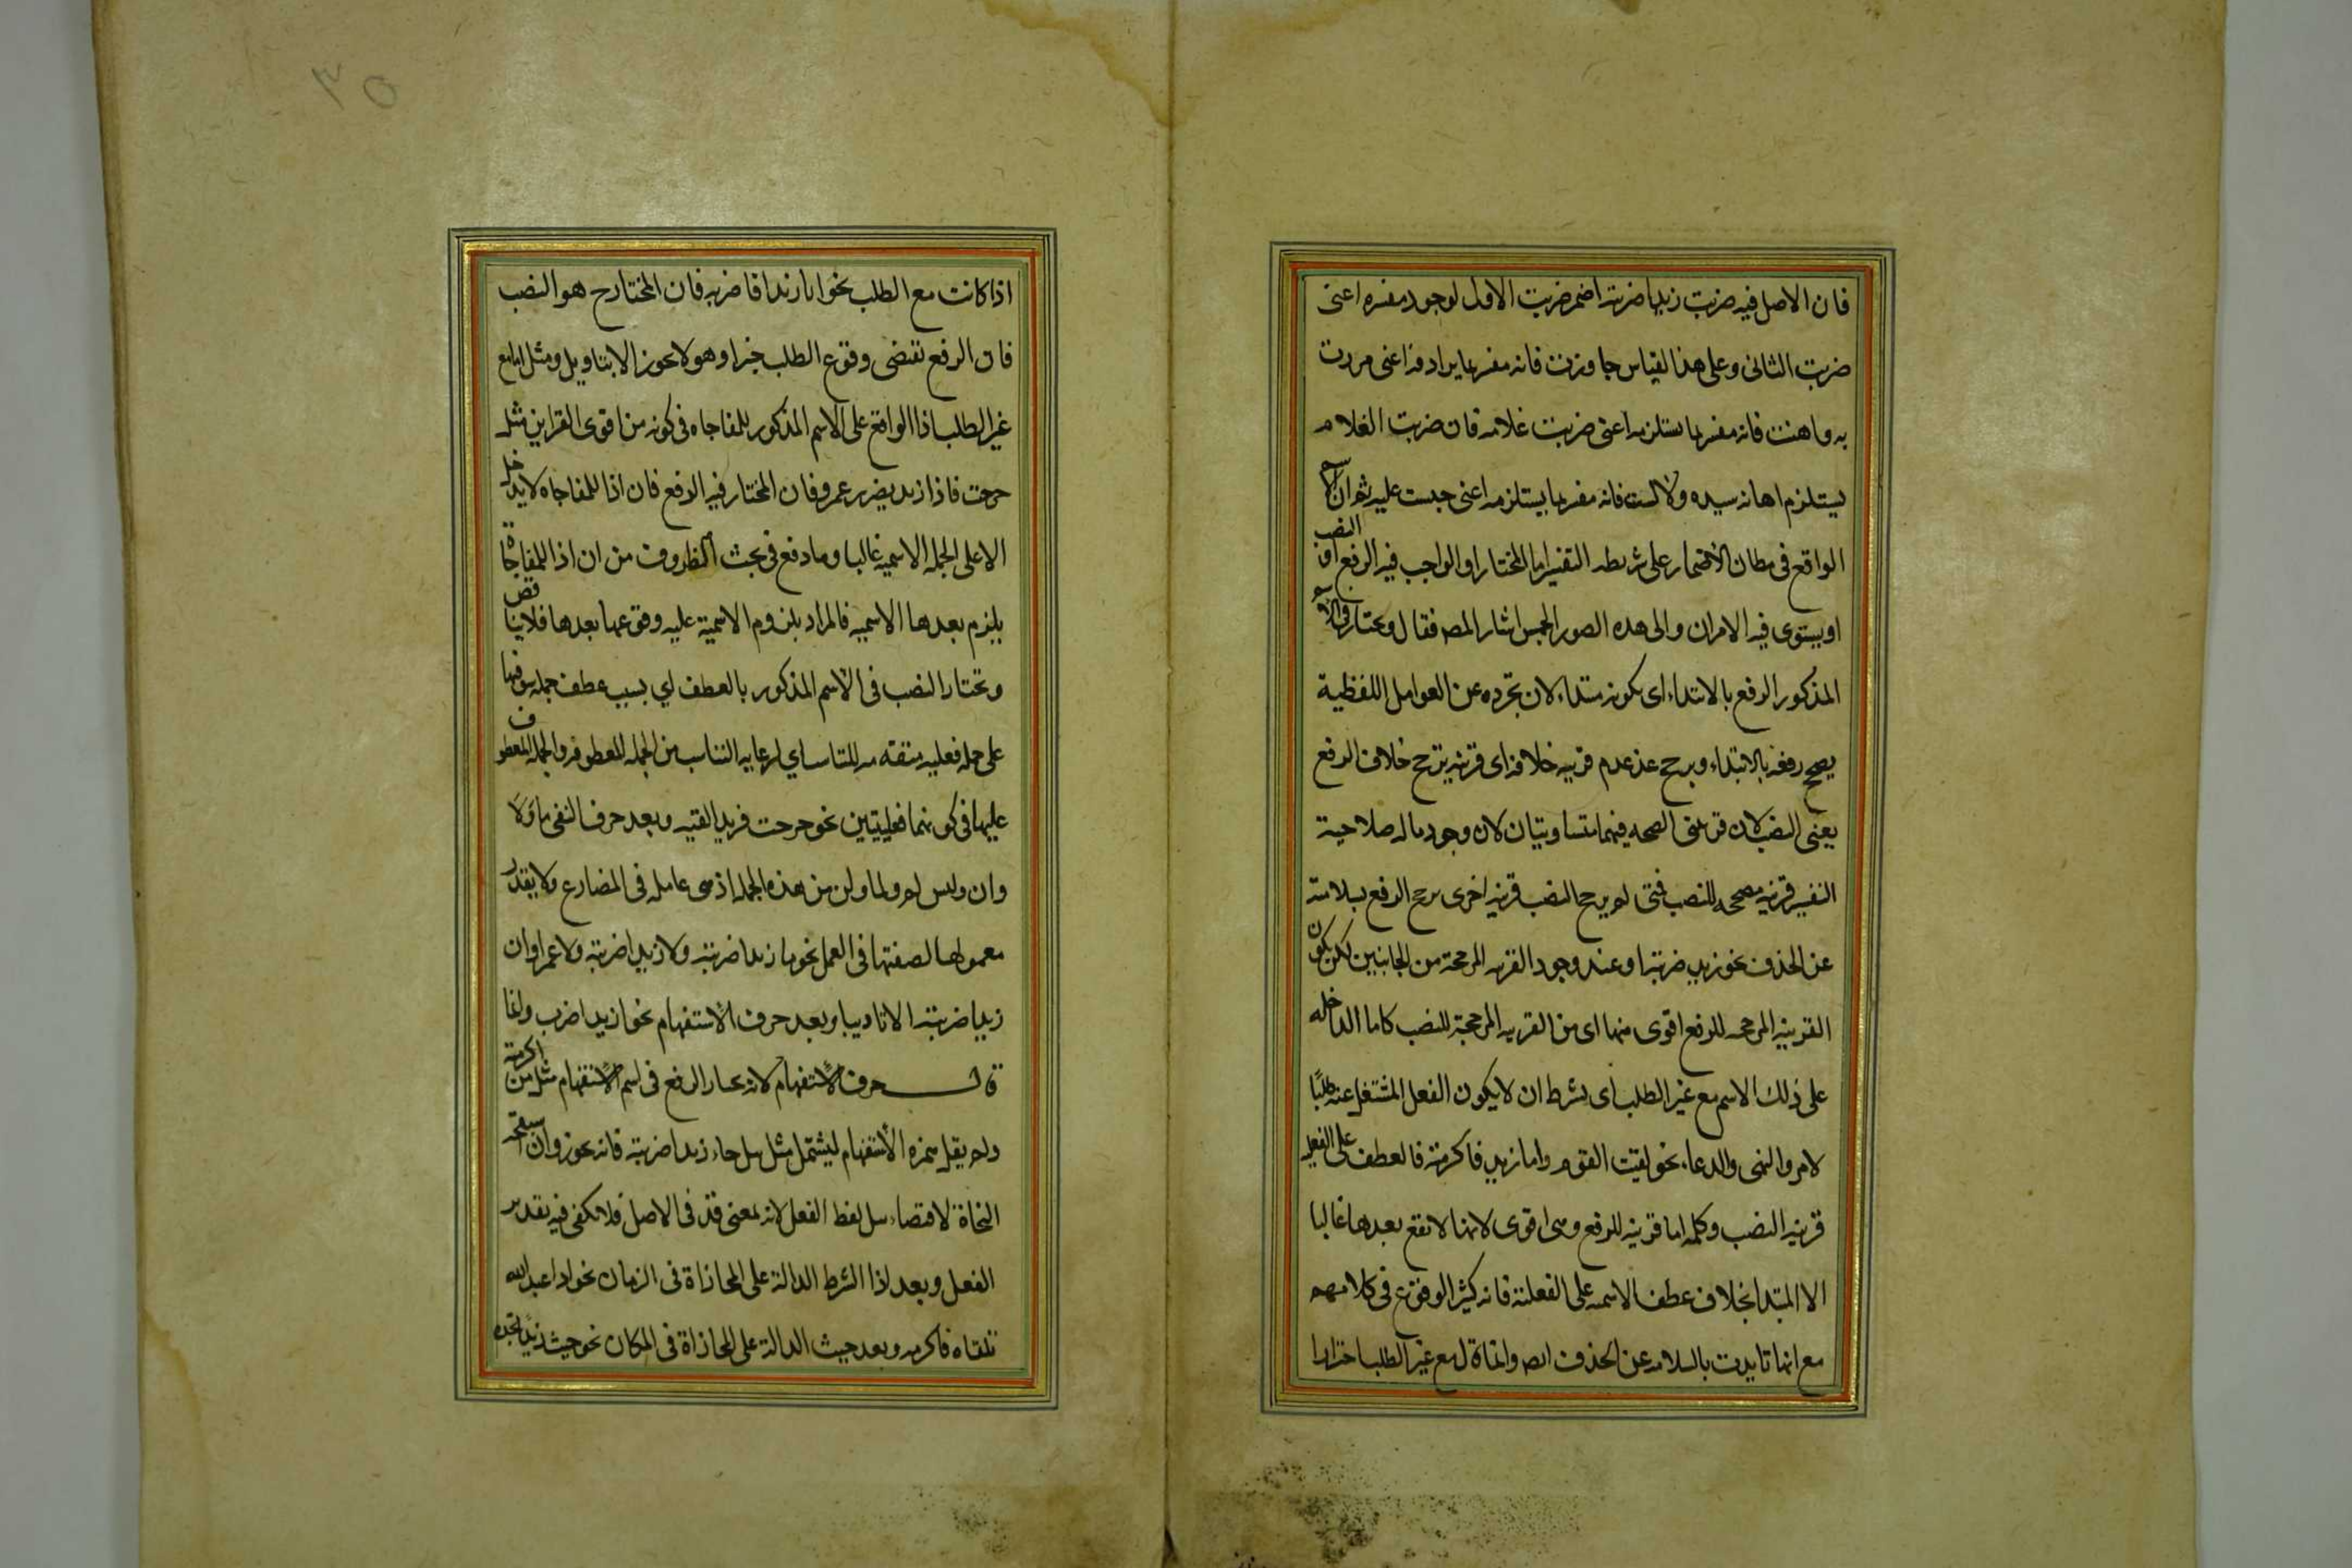 فان الاصل فيه ضربت زيدا ضربته اضمر ضربت الاول لوجود مفسره اعنى
ضربت الثانى وعلى هذا القياس جاوزت فانه مفسر بما يرادفه اعنى مررت
به واهنت فانه مفسر بما يستلزمه اعنى ضربت غلامه فان ضرب الغلام
يستلزم اهانه سيده ولابست فانه مفسر بما يستلزمه اعنى حبست عليه ثم ان الاسم
الواقع فى مظان الاضمار على شريطه التفسير اما المختار او الواجب فيه الرفع او النصب
او يستوى فيه الامران والى هذه الصور الخمس اشار المص فقال ويختار فى الاسم
المذكور الرفع بالابتداء اى بكونه مبتداء لان تجرده عن العوامل اللفظية
يصحح رفعه بالابتداء ويرجح عند عدم قرينه خلافه اى قرينه يرجح خلاف الرفع
يعنى النصب لان قرينتى الصحه فيهما متساويتان لان وجود ماله صلاحية
التفسير قرينه مصححه للنصب فمتى لم يرجح النصب قرينه اخرى يرجح الرفع بسلامته
عن الحذف نحو زيد ضربته او عند وجود القرينه المرجحة من الجانبين لكن يكون
القرينه المرجحه للرفع اقوى منها اى من القرينه المرجحة للنصب كاما الداخله
على ذلك الاسم مع غير الطلب اى بشرط ان لا يكون الفعل المشتغل عنه طلبًا
لامر والنهى والدعاء نحو لقيت القوم واما زيد فاكرمته فالعطف على الفعليه
قرينه النصب وكلمه اما قرينه للرفع وهى اقوى لانها لا تقع بعدها غالبا
الا المبتدا بخلاف عطف الاسميه على الفعلية فانه كثير الوقوع فى كلامهم
مع انها تايدت بالسلامه عن الحذف ايض وانما قال مع غير الطلب احترازا
٣٥
اذا كانت مع الطلب نحو اما زيدا فاضربه فان المختار ح هو النصب
فان الرفع تقتضى وقوع الطلب خبرا وهو لا يجوز الا بتاويل ومثل اما مع
غير الطلب اذا الواقع على الاسم المذكور للمفاجاه فى كونه من اقوى القراين مثل
خرجت فاذا زيد يضربه عمرو فان المختار فيه الرفع فان اذا للمفاجاه لا يدخل
الا على الجمله الاسميه غالبا وما دفع فى بحث الظروف من ان اذا للمفاجاة
يلزم بعدها الاسميه فالمراد بلزوم الاسمية عليه وقوعها بعدها فلا تناقض
وتختار النصب فى الاسم المذكور بالعطف اى بسبب عطف جمله هو فيها
على جمله فعليه متقدمه للتناسب اى لرعايه التناسب بين الجمله المعطوفه والجمله المعطوف
عليها فى كونهما فعليتين نحو خرجت فزيدا لقيته وبعد حرف النفى ما ولا
وان وليس لم ولما ولن من هذه الجمله اذ هى عامله فى المضارع ولا يقدر
معمولها لضعفها فى العمل نحو ما زيدا ضربته ولا زيدا ضربته ولا عمرا وان
زيدا ضربته الا تاديبا وبعد حرف الاستفهام نحو ازيدا ضرب وانما
قال حرف الاستفهام لانه يختار الرفع فى اسم الاستفهام مثل من اكرمته
ولم يقل همزه الاستفهام ليشتمل مثل هل جاء زيدا ضربته فانه يجوز وان استقبحه
النحاة لاقتضاء هل لفظ الفعل لانه بمعنى قد فى الاصل فلا يكفى فيه تقدير
الفعل وبعد اذا الشرط الدالة على المجازاة فى الزمان نحو اذا عبد الله
تلقاه فاكرمه وبعد حيث الدالة على المجازاة فى المكان نحو حيث زيدًا تجده